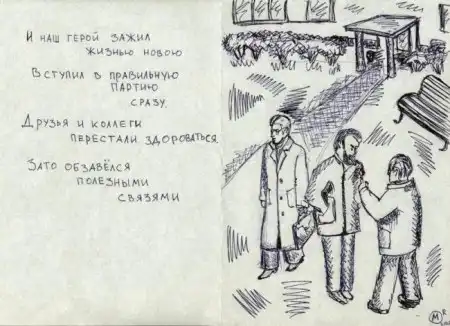 И НАШ ГЕРОЙ ЗАЖИЛ
ЖИЗНЬЮ НОВОЮ
ВСТУПИЛ В ПРАВИЛЬНУЮ
ПАРТИЮ
СРАЗУ.
ДРУЗЬЯ И КОЛЛЕГИ
ПЕРЕСТАЛИ ЗДОРОВАТЬСЯ
ЗАТО ОБЗАВЁЛСЯ
ПОЛЕЗНЫМИ
СВЯЗЯМИ
М